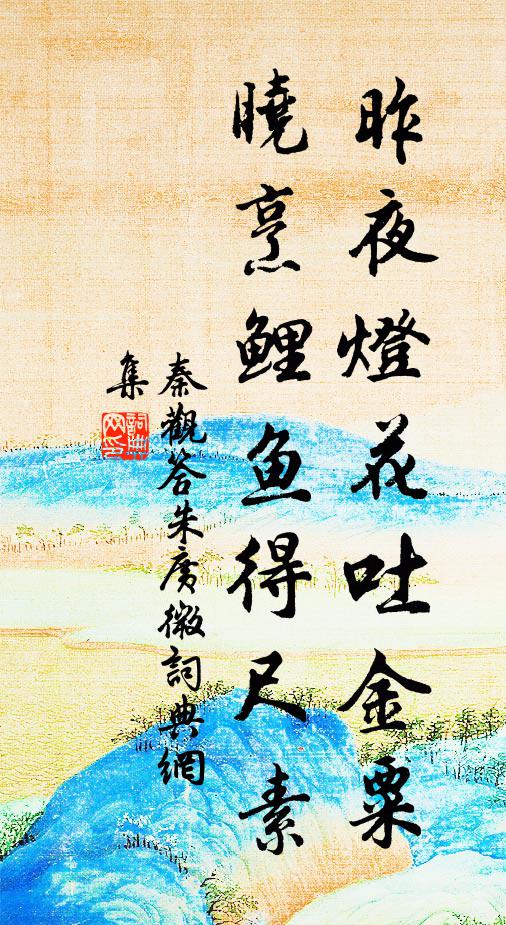 昨夜燈花吐金粟
曉烹鲤鱼得尺素
秦觀答朱广微詞典網
集
詞典網印